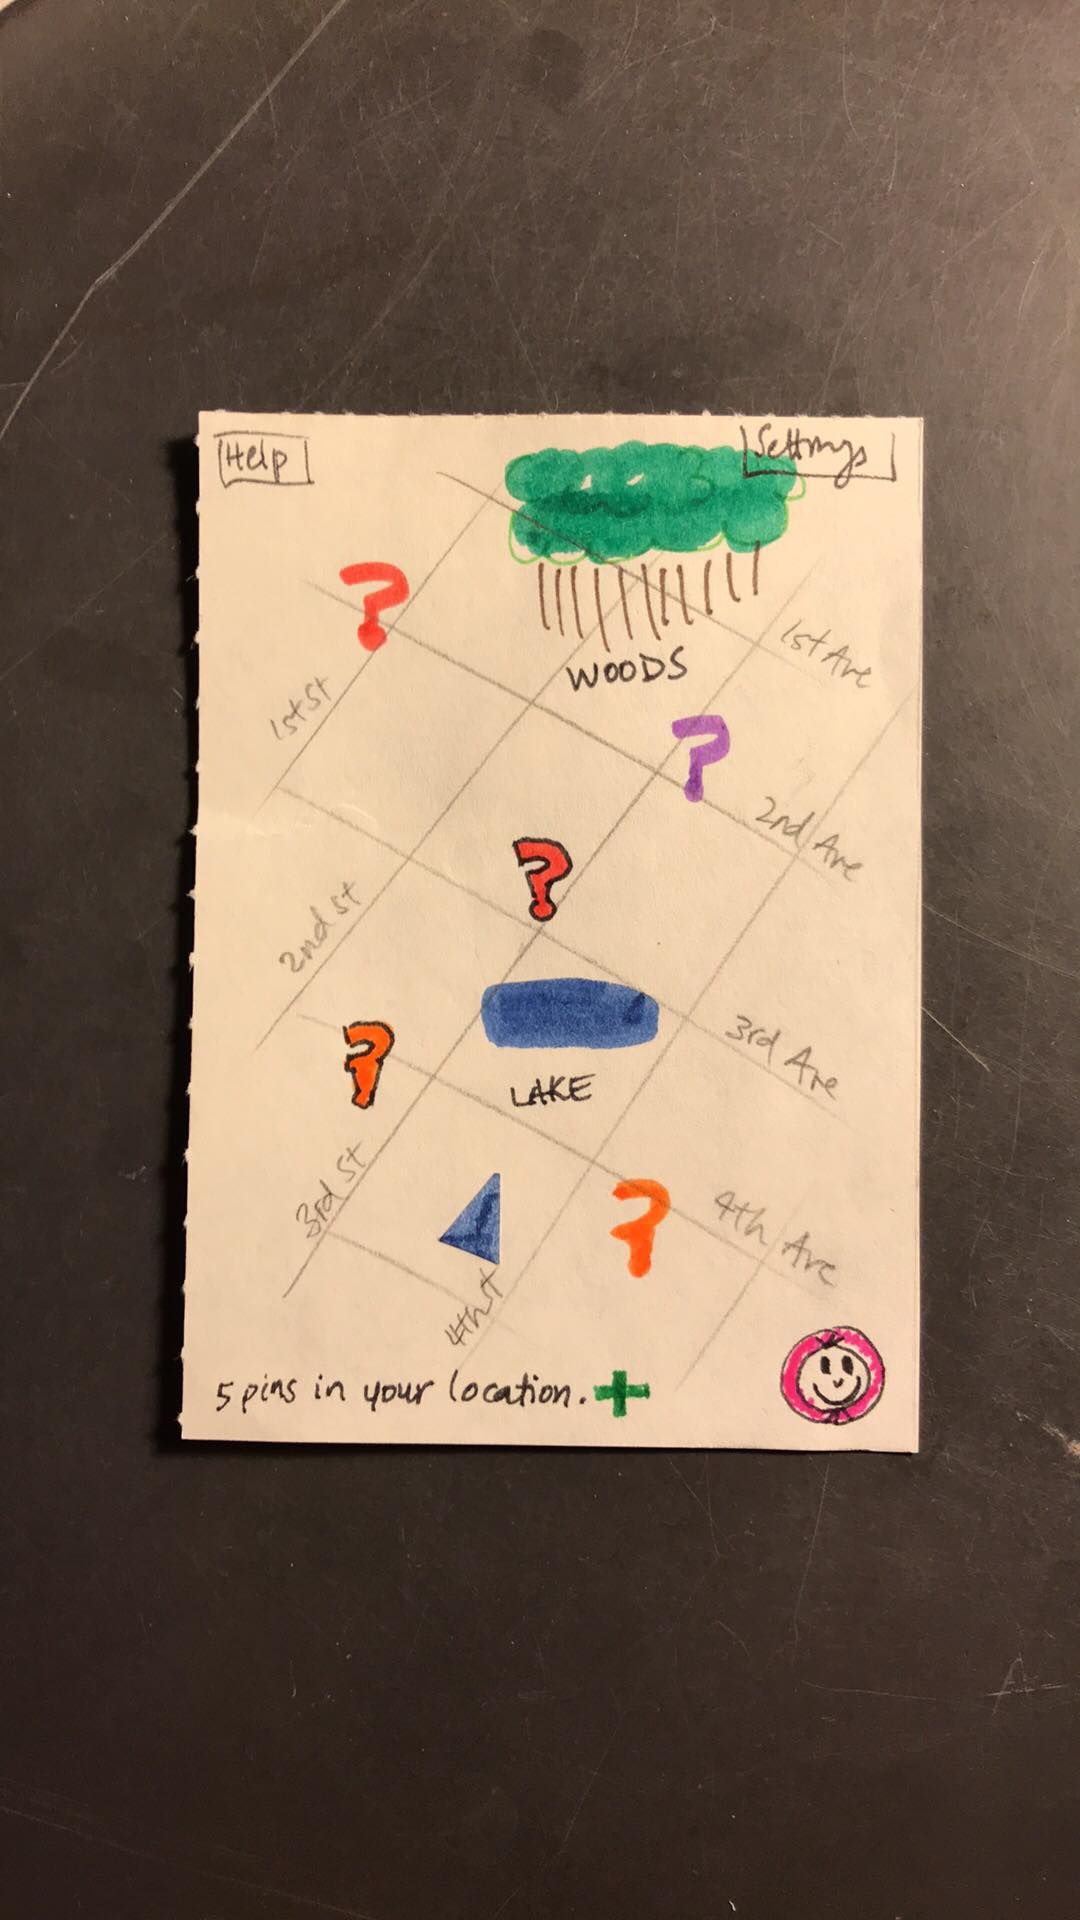 Help
Settings
1st Ave
WOODS
1st St
2nd Ave
2nd St
3rd Ave
LAKE
3rd St
4th Ave
4th St
5 pins in your location.